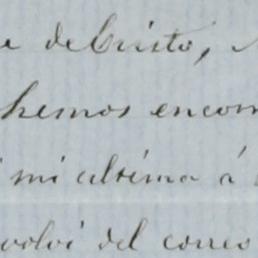 e de Cristo,
hemos encom
mi ultima á
volví del correo